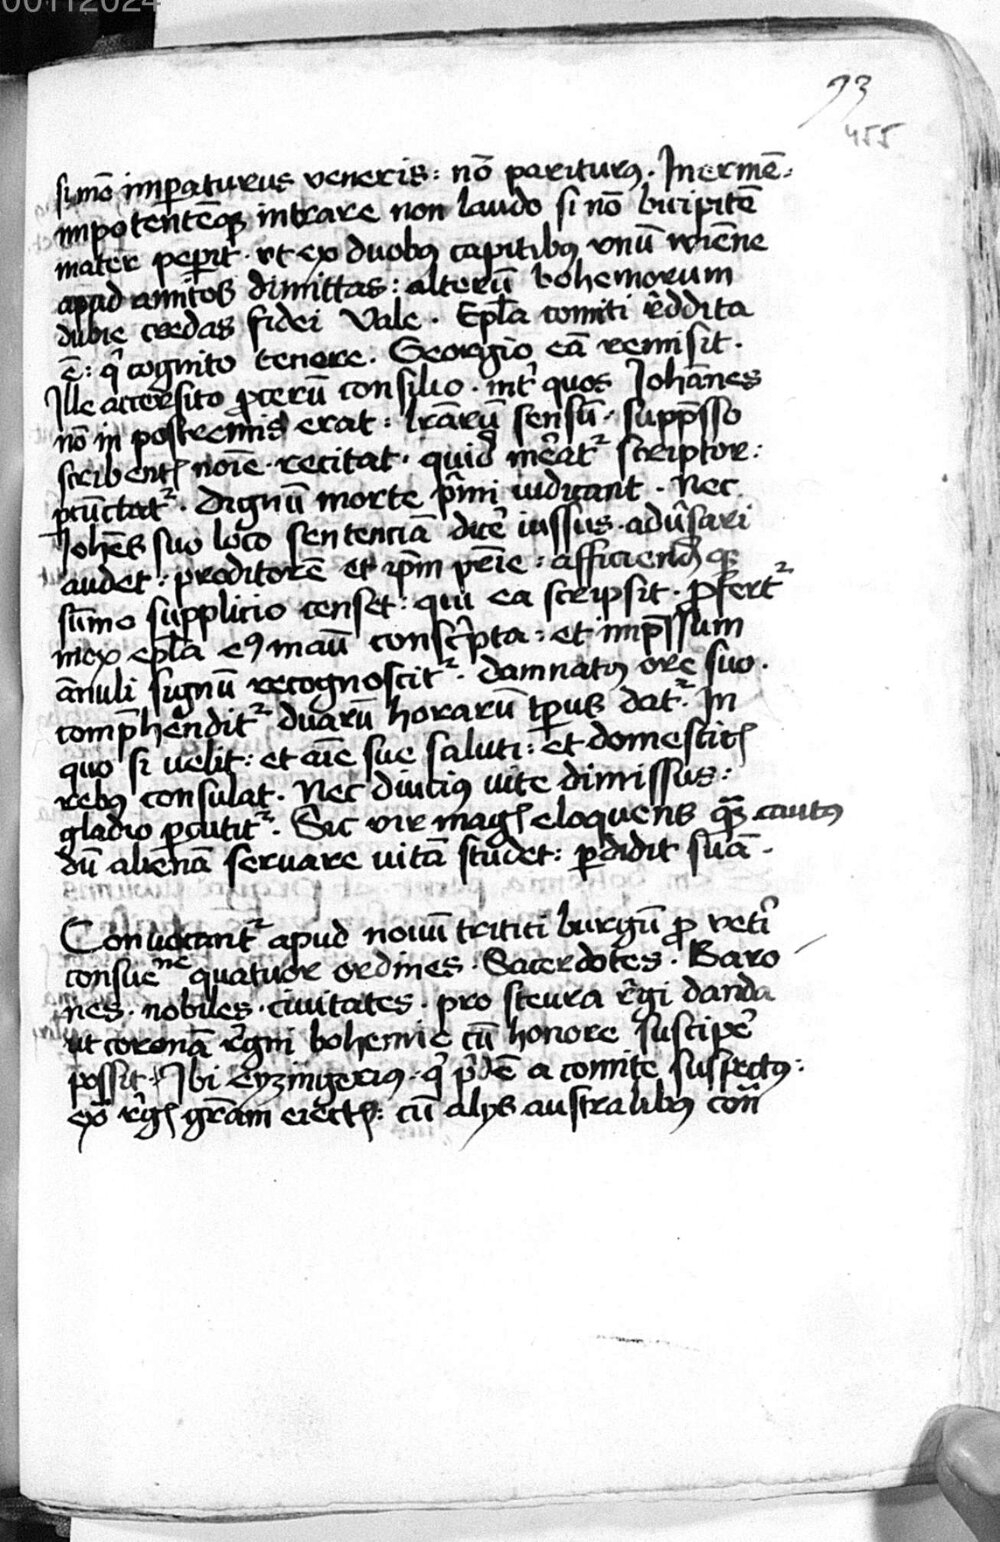 00112024
93
455
simō imꝑaturus veneris: nō pariturꝯ. Inermē.
impotentēqꝫ intrare non laudo si nō bicipitē
mater peꝑit. vt ex duobꝯ capitibꝯ vnū wiēne
apud amicos dimittas: alterū bohemorum
dubie credas fidei Vale. Epl̄a comiti reddita
ē: qͥ cognito tenore. Georgio eā remisit.
Ille accersito ꝓcerū consilio. int̾ quos Johānes
nō in postremis erat: lr̄arū sensū. supp̄sso
scribentꝭ noīe. recitat. quid me̾atᷣ scriptor:
ꝑcūctatᷣ. dignū morte pͥmi iudicant. Nec
Joh̄es suo loco sentenciā dice̾ iussus. adu̾sari
audet: proditorē et ip̄m
sūmo supplicio censet: qui ea scripsit. ꝓfertᷣ
mox epl̄a eꝯ manū conscͥpta: et imp̄ssum
ānuli signū recognoscitᷣ. damnatꝯ ore suo.
comp̄henditᷣ duarū horarū tꝑus datᷣ. In
quo si velit: et aīe sue saluti: et domesticꝭ
rebꝯ consulat. Nec diuciꝯ vite dimissus:
gladio ꝑcutitᷣ. Sic vir magꝭ eloquens qͣꝫ cautꝯ
dū alienā seruare uitā studet: ꝑdidit suā.
Conuocantᷣ apud nouū tritici burgū ꝓ vetͥ
consueⁿᵉ quatuor ordines. Sacerdotes. Baro
nes. nobiles. ciuitates. pro steura r̾gi danda
ut coronā r̾gni bohemie cū honore suscipe̾
possit. Ibi eyzingerius. qͥ pͥdē a comite suspectꝯ:
exͣ r̾gꝭ gr̄am eiectꝯ: cū alijs australibꝯ con̄